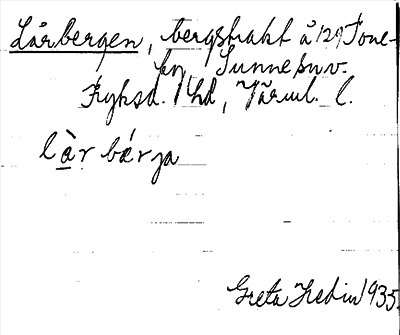 Lårbergen, bergstrakt å 129 Tone-
by, Sunne snv.
Fryksd. hd, Värml. l.
làr bærja
Greta Hedin 1935.